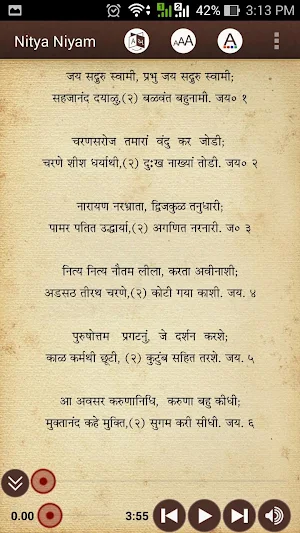 42% 3:13 PM
Nitya Niyam
जय सद्गुरु स्वामी, प्रभु जय सद्गुरु स्वामी;
सहजानंद दयाळु,(२) बळवंत बहुनामी. जय० १
चरणसरोज तमारां वंदु कर जोडी;
चरणे शीश धर्याथी,(२) दुःख नाख्यां तोडी. जय० २
नारायण नरभ्राता, द्विजकुळ तनुधारी;
पामर पतित उद्धार्या,(२) अगणित नरनारी. ज० ३
नित्य नित्य नौतम लीला, करता अवीनाशी;
अडसठ तीरथ चरणे,(२) कोटी गया काशी. जय. ४
पुरुषोत्तम प्रगटनुं, जे दर्शन करशे;
काळ कर्मथी छूटी, (२) कुटुंब सहित तरशे. जय. ५
आ अवसर करुणानिधि, करुणा बहु कीधी;
मुक्तानंद कहे मुक्ति,(२) सुगम करी सीधी. जय. ६
0.00 3:55